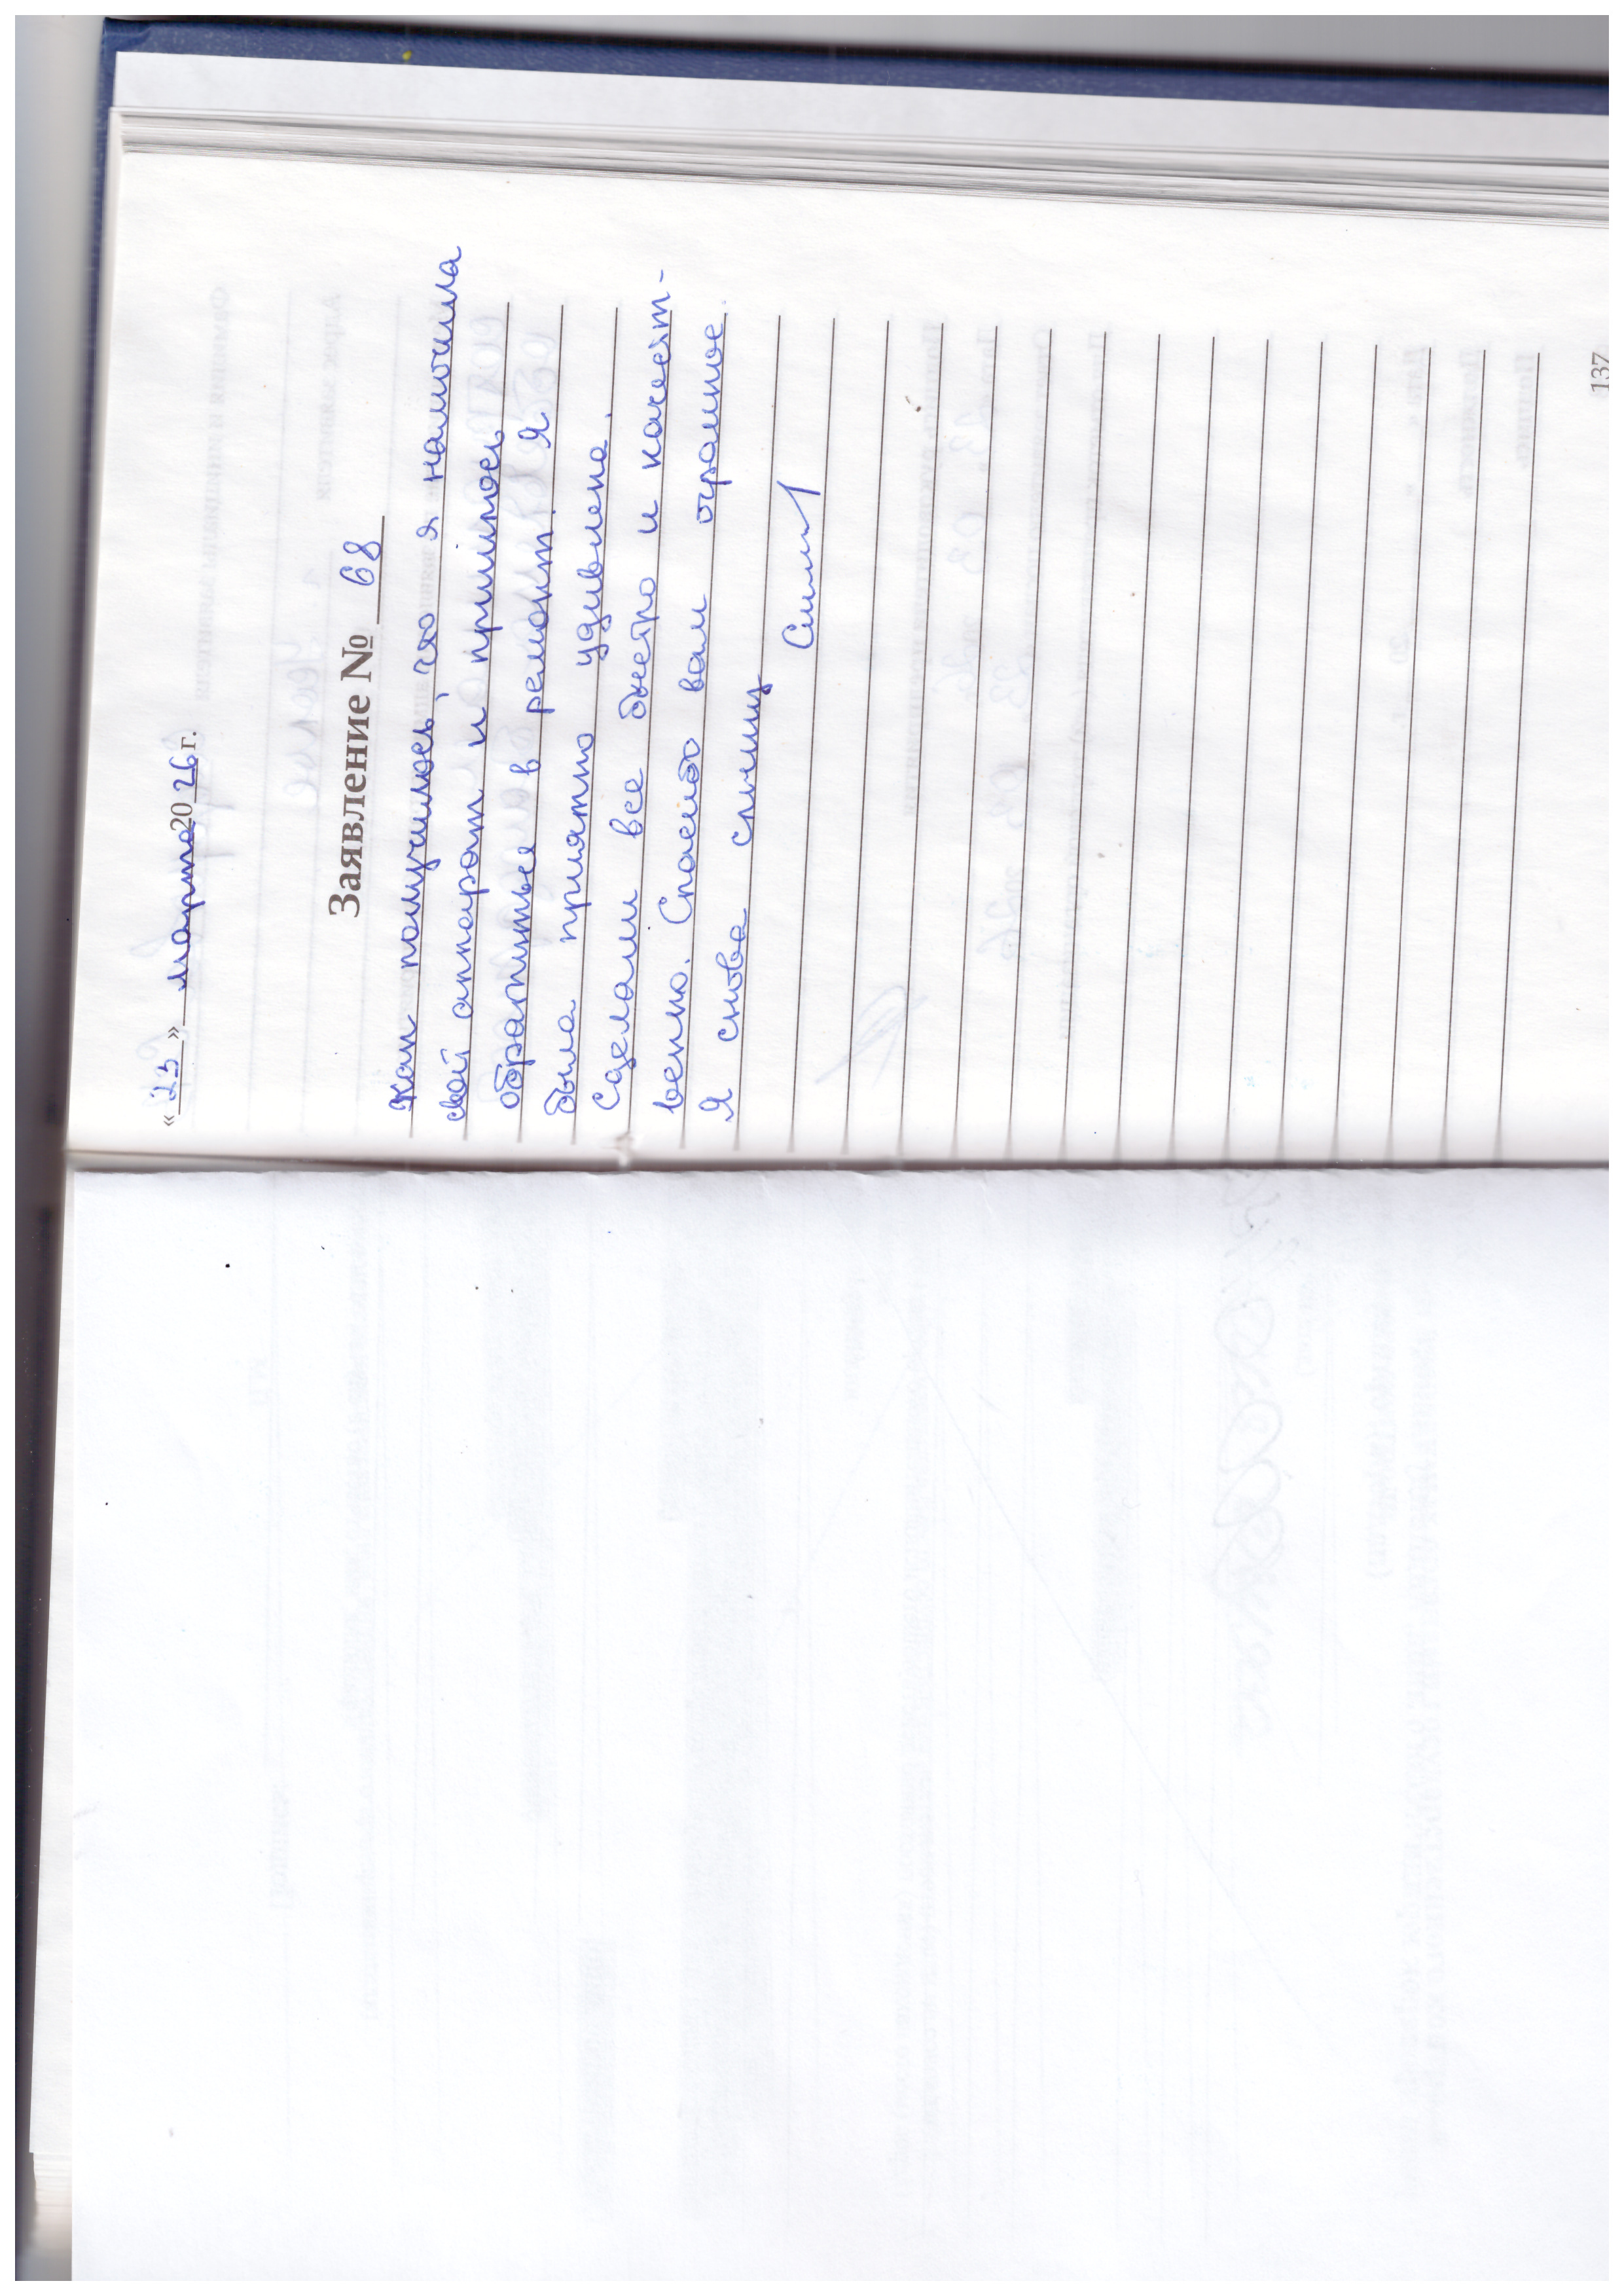 «23» марта 2026 г.
Заявление № 68
Как получилось, что я намочила
свой аппарат и пришлось
обратиться в ремонт. Я
была приятно удивлена.
Сделали все быстро и качест-
венно. Спасибо вам огромное.
Я снова слышу
137